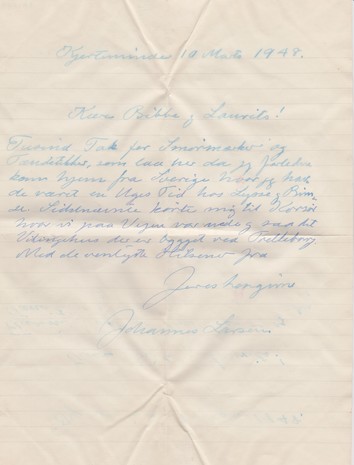 Kjerteminde 19 Marts 1948.
Kære Bibbe og Laurits!
Tusind Tak for Smørmærker og
som laa her da jeg
kom hjem fra Sverige hvor jeg had
de været en Uges Tid hos Lysse og Bim
de Sidstnævnte kørte mig til Korsør
hvor vi paa Vejen var nede og saa det
Vikingehus der er bygget ved Trelleborg.
Med de venligste Hilsener fra
Jeres hengivne
Johannes Larsen